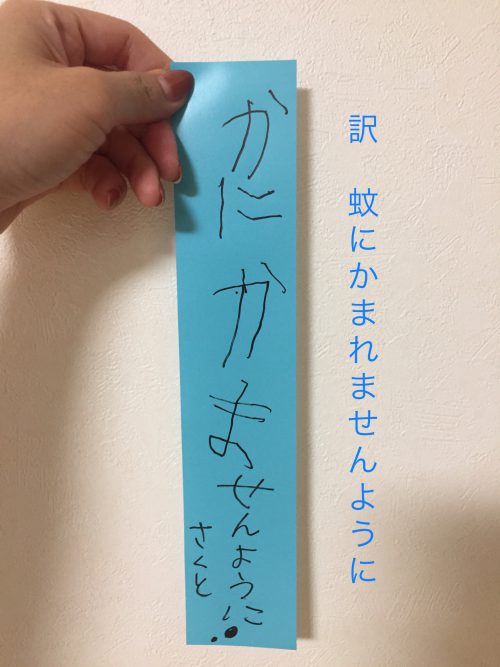 訳　蚊にかまれませんように
かにかませんように
さくと